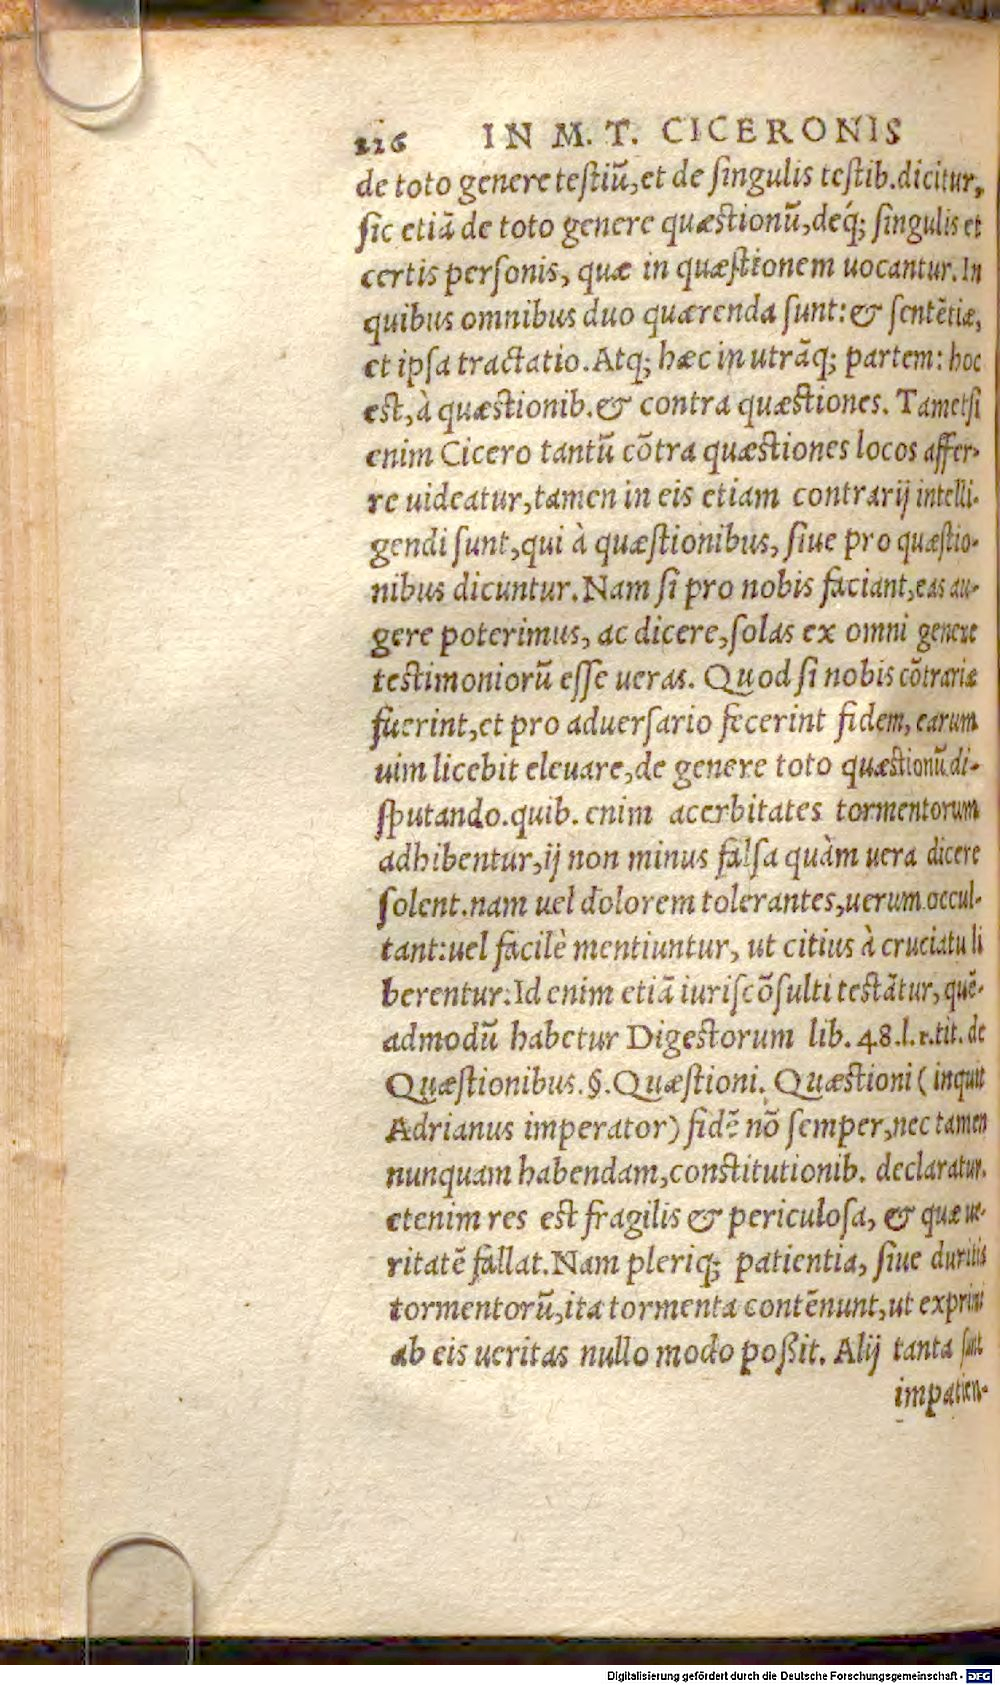 226 IN M. T. CICERONIS
de toto genere testiū, et de singulis testib. dicitur,
sic etiā de toto genere quæstionū, deq́; singulis et
certis personis, quæ in quæstionem uocantur. In
quibus omnibus duo quærenda sunt: & sentētiæ,
et ipsa tractatio. Atq; hæc in utrāq; partem: hoc
est, à quæstionib. & contra quæstiones. Tametsi
enim Cicero tantū cōtra quæstiones locos affer-
re uideatur, tamen in eis etiam contrarij intelli-
gendi sunt, qui à quæstionibus, siue pro quæstio-
nibus dicuntur. Nam si pro nobis faciant, eas au-
gere poterimus, ac dicere, solas ex omni genere
testimoniorū esse ueras. Quod si nobis cōtrariæ
fuerint, et pro aduersario fecerint fidem, earum
uim licebit eleuare, de genere toto quæstionū di-
sputando. quib. enim acerbitates tormentorum
adhibentur, ij non minus falsa quàm uera dicere
solent. nam uel dolorem tolerantes, uerum occul-
tant: uel facilè mentiuntur, ut citius à cruciatu li
berentur. Id enim etiā iuriscōsulti testātur, quē-
admodū habetur Digestorum lib. 48. l. 1. tit. de
Quæstionibus. §. Quæstioni. Quæstioni ( inquit
Adrianus imperator) fidē nō semper, nec tamen
nunquam habendam, constitutionib. declaratur.
etenim res est fragilis & periculosa, & quæ ue-
ritatē fallat. Nam pleriq; patientia, siue duritia
tormentorū, ita tormenta contēnunt, ut exprimi
ab eis ueritas nullo modo poßit. Alij tanta sunt
impatien-
Digitalisierung gefördert durch die Deutsche Forschungsgemeinschaft - DFG